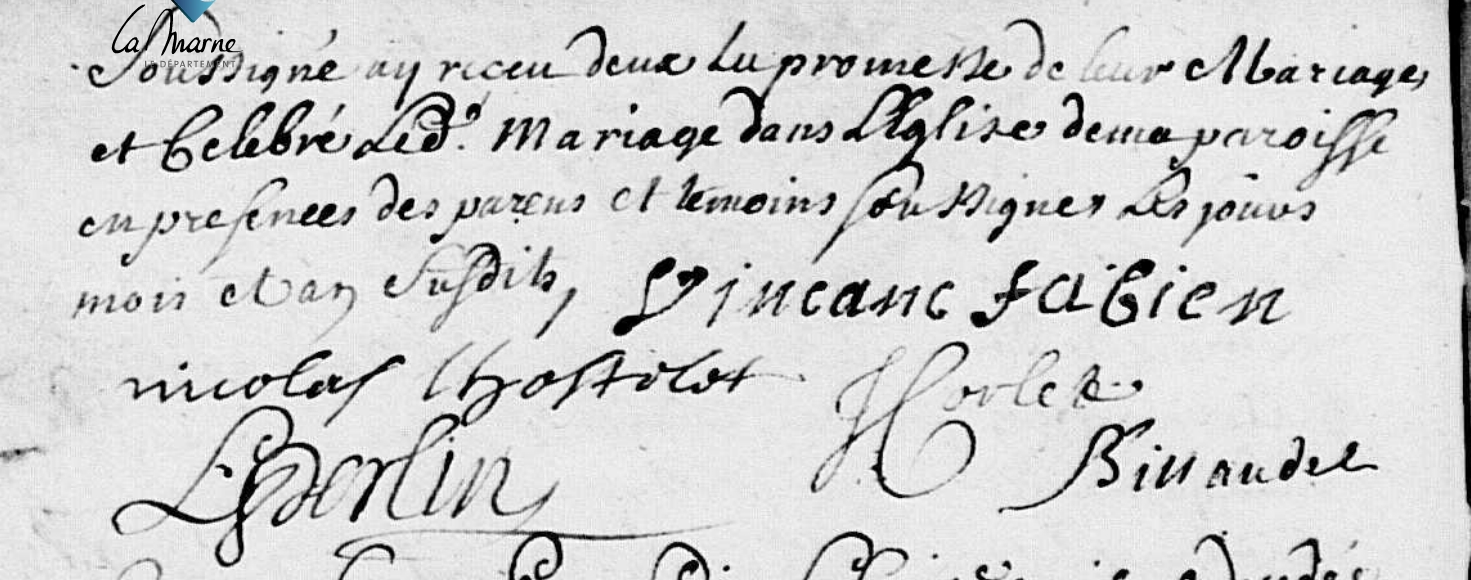 La Marne
LE DÉPARTEMENT
Soussigné ay receu deux La promesse de leur Mariage,
et Celebré Led.^t Mariage dans L'Eglise de ma paroisse
en presences des parens et temoins soussignes Les jours
mois et an susdits, Vincanc fabien
nicolas lhostelot Horlet
Binaudel